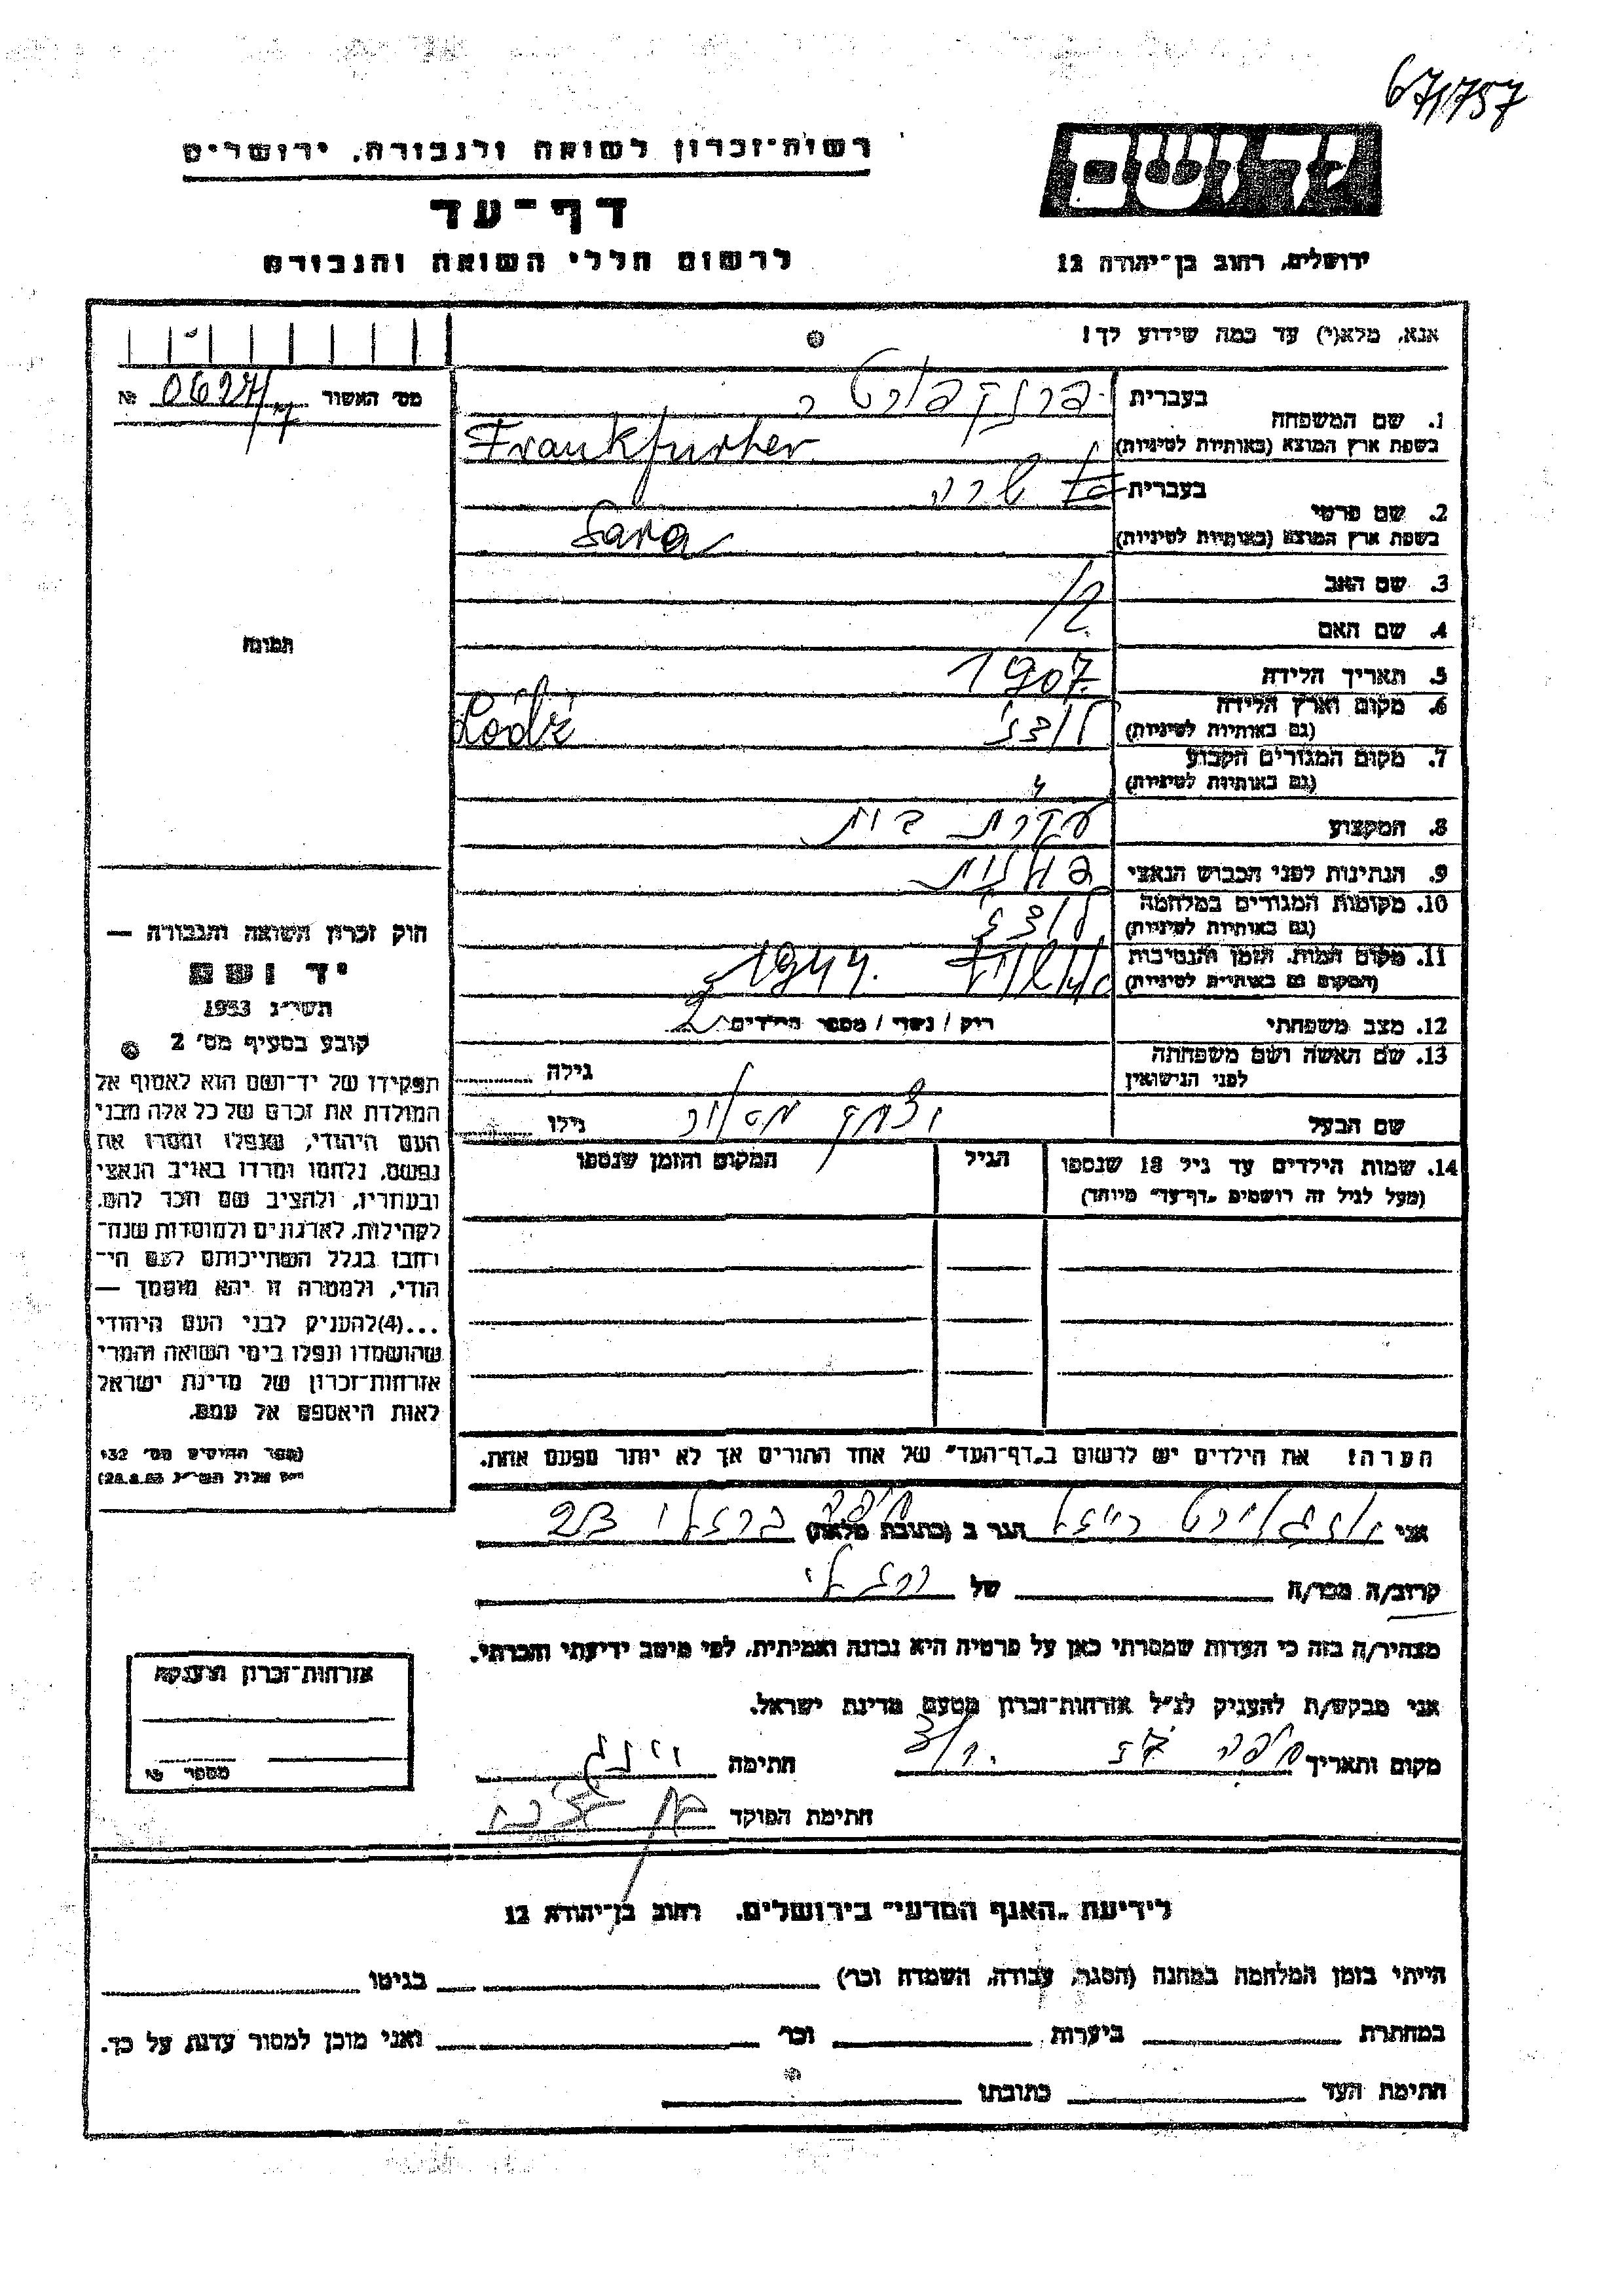 671757
יד ושם
רשות־זכרון לשואה ולגבורה, ירושלים
דף־עד
לרשום חללי השואה והגבורה
ירושלים, רחוב בן־יהודה 12
אנא, מלא(י) עד כמה שידוע לך!
מס׳ האשור № 0627/7
1. שם המשפחה בעברית פרנקפורטר
בשפת ארץ המוצא (באותיות לטיניות) Frankfurter
2. שם פרטי בעברית שרה
בשפת ארץ המוצא (באותיות לטיניות) Sara
3. שם האב
4. שם האם
5. תאריך הלידה 1907
6. מקום וארץ הלידה (גם באותיות לטיניות) לודג׳ Łódź
7. מקום המגורים הקבוע (גם באותיות לטיניות)
8. המקצוע עקרת בית
9. הנתינות לפני הכבוש הנאצי פולנית
10. מקומות המגורים במלחמה (גם באותיות לטיניות) לודז
11. מקום המות, הזמן והנסיבות (המקום גם באותיות לטיניות) 1944.
12. מצב משפחתי רוק / נשוי / מספר הילדים 2
13. שם האשה ושם משפחתה לפני הנישואין גילה
שם הבעל גילו
14. שמות הילדים עד גיל 18 שנספו (מעל לגיל זה רושמים „דף־עד״ מיוחד) הגיל המקום והזמן שנספו
הערה! את הילדים יש לרשום ב„דף־העד״ של אחד ההורים אך לא יותר מפעם אחת.
תמונה
חוק זכרון השואה והגבורה —
יד ושם
תשי״ג 1953
קובע בסעיף מס׳ 2
תפקידו של יד־ושם הוא לאסוף אל
המולדת את זכרם של כל אלה מבני
העם היהודי, שנפלו ומסרו את
נפשם, נלחמו ומרדו באויב הנאצי
ובעוזריו, ולהציב שם וזכר להם,
לקהילות, לארגונים ולמוסדות שנח־
רחבו בגלל השתייכותם לעם הי־
הודי, ולמטרה זו יהא מוסמך —
...(4)להעניק לבני העם היהודי
שהושמדו ונפלו בימי השואה והמרי
אזרחות־זכרון של מדינת ישראל
לאות היאספם אל עמם.
(ספר החוקים מס׳ 132
אלול תשי״ג 28.8.53)
אני הגר ב (כתובת מלאה) חיפה ברזילי 23
קרוב/ה מכר/ה של
מצהיר/ה בזה כי העדות שמסרתי כאן על פרטיה היא נכונה ואמיתית, לפי מיטב ידיעתי והכרתי.
אני מבקש/ת להעניק לנ״ל אזרחות־זכרון מטעם מדינת ישראל.
מקום ותאריך חיפה חתימה
חתימת הפוקד
אזרחות־זכרון הוענקה
מספר
לידיעת „האגף המדעי״ בירושלים, רחוב בן־יהודה 12
הייתי בזמן המלחמה במחנה (הסגר, עבודה, השמדה וכר׳) בגיטו
במחתרת ביערות וכר׳ ואני מוכן למסור עדות על כך.
חתימת העד כתובתו